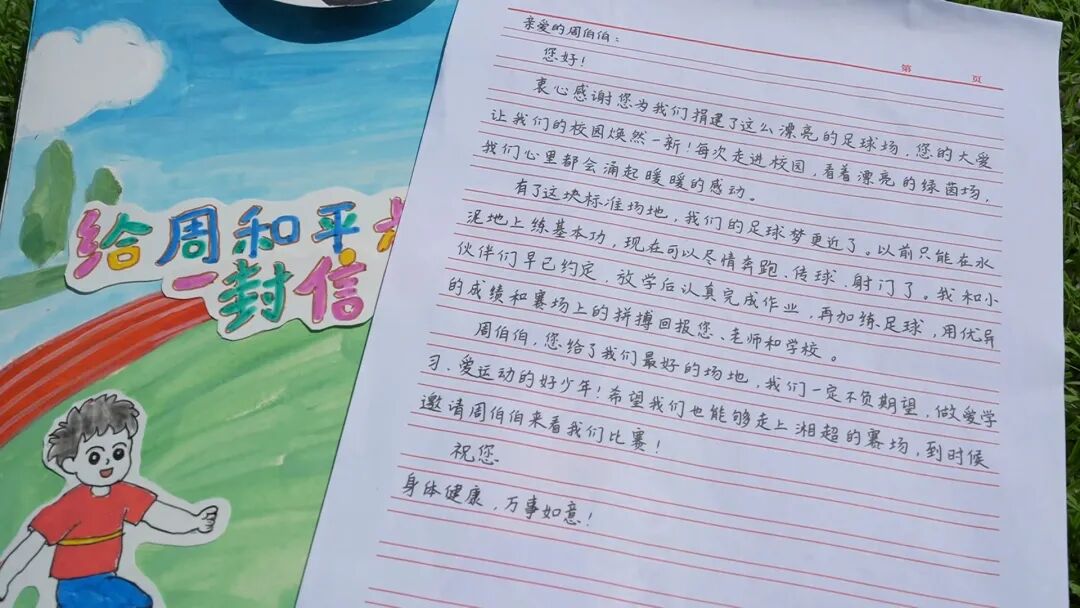 给周和平
一封信
第 页
亲爱的周伯伯：
您好！
衷心感谢您为我们捐建了这么漂亮的足球场，您的大爱
让我们的校园焕然一新！每次走进校园，看着漂亮的绿茵场，
我们心里都会涌起暖暖的感动。
有了这块标准场地，我们的足球梦更近了。以前只能在水
泥地上练基本功，现在可以尽情奔跑、传球、射门了。我和小
伙伴们早已约定，放学后认真完成作业，再加练足球，用优异
的成绩和赛场上的拼搏回报您、老师和学校。
周伯伯，您给了我们最好的场地，我们一定不负期望，做爱学
习、爱运动的好少年！希望我们也能够走上湘超的赛场，到时候
邀请周伯伯来看我们比赛！
祝您
身体健康，万事如意！